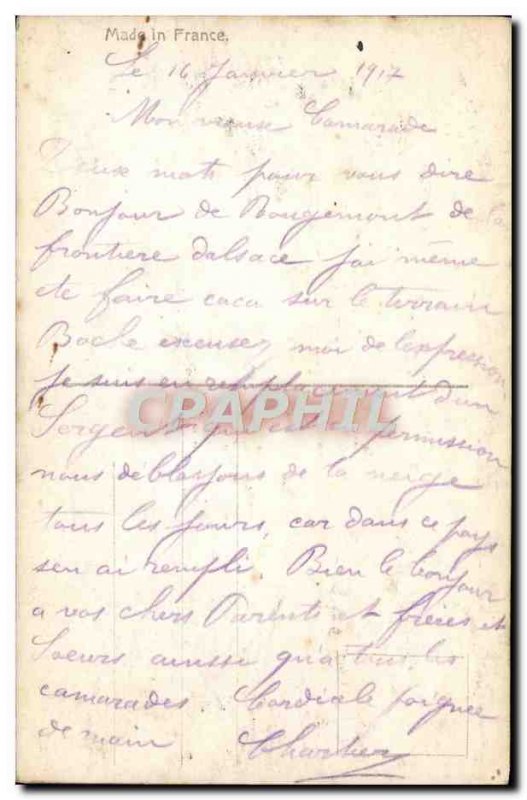 Made in France.
Le 16 Janvier 1917
Mon vieux Camarade
Deux mots pour vous dire
Bonjour de Rougemont de la
frontiere dalsace jai même
ete faire caca sur le terrain
Boche excusez moi de l'expression
je suis en remplacement dun
Sergent qui est en permission
nous déblayons de la neige
tous les jours, car dans ce pays
sen ai rempli Bien le bonjour
a vos chers Parents et frères et
Soeurs aussi qu'a tous les
camarades Cordiale poignee
de main Chartier
CRAPHIL